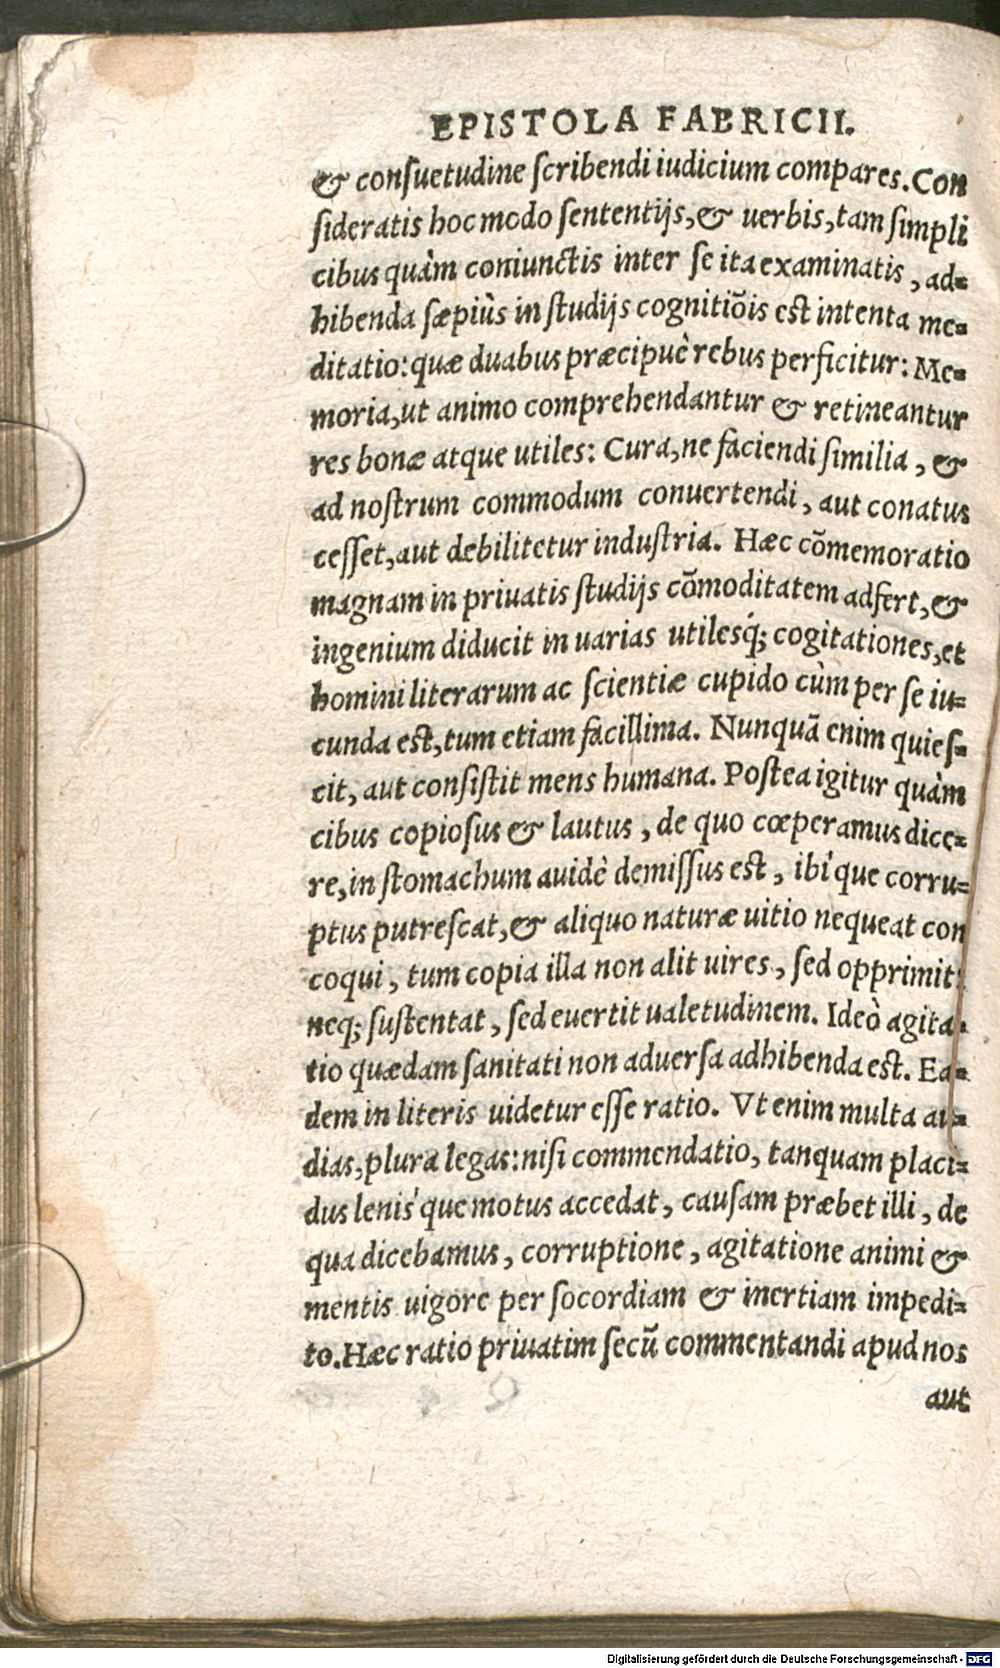 EPISTOLA FABRICII.
& consuetudine scribendi iudicium compares. Con
sideratis hoc modo sententijs, & uerbis, tam simpli
cibus quàm coniunctis inter se ita examinatis, ad-
hibenda sæpiùs in studijs cognitiōis est intenta me-
ditatio: quæ duabus præcipuè rebus perficitur: Me-
moria, ut animo comprehendantur & retineantur
res bonæ atque utiles: Cura, ne faciendi similia, &
ad nostrum commodum conuertendi, aut conatus
cesset, aut debilitetur industria. Hæc cōmemoratio
magnam in priuatis studijs cōmoditatem adfert, &
ingenium diducit in uarias utilesq́; cogitationes, et
homini literarum ac scientiæ cupido cùm per se iu-
cunda est, tum etiam facillima. Nunquā enim quies-
cit, aut consistit mens humana. Postea igitur quàm
cibus copiosus & lautus, de quo cœperamus dice-
re, in stomachum auidè demissus est, ibi'que corru-
ptus putrescat, & aliquo naturæ uitio nequeat con
coqui, tum copia illa non alit uires, sed opprimit:
neq; sustentat, sed euertit ualetudinem. Ideò agita-
tio quædam sanitati non aduersa adhibenda est. Ea-
dem in literis uidetur esse ratio. Vt enim multa au-
dias, plura legas: nisi commendatio, tanquam placi-
dus lenis'que motus accedat, causam præbet illi, de
qua dicebamus, corruptione, agitatione animi &
mentis uigore per socordiam & inertiam impedi-
to. Hæc ratio priuatim secū commentandi apud nos
aut
Digitalisierung gefördert durch die Deutsche Forschungsgemeinschaft - DFG